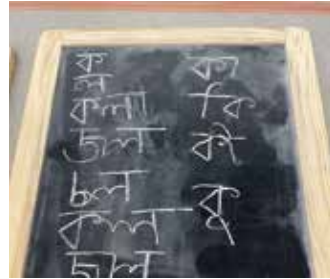 ক
ল
কলা
জল
চল
কলা
জাল
কা
কি
কী
কু